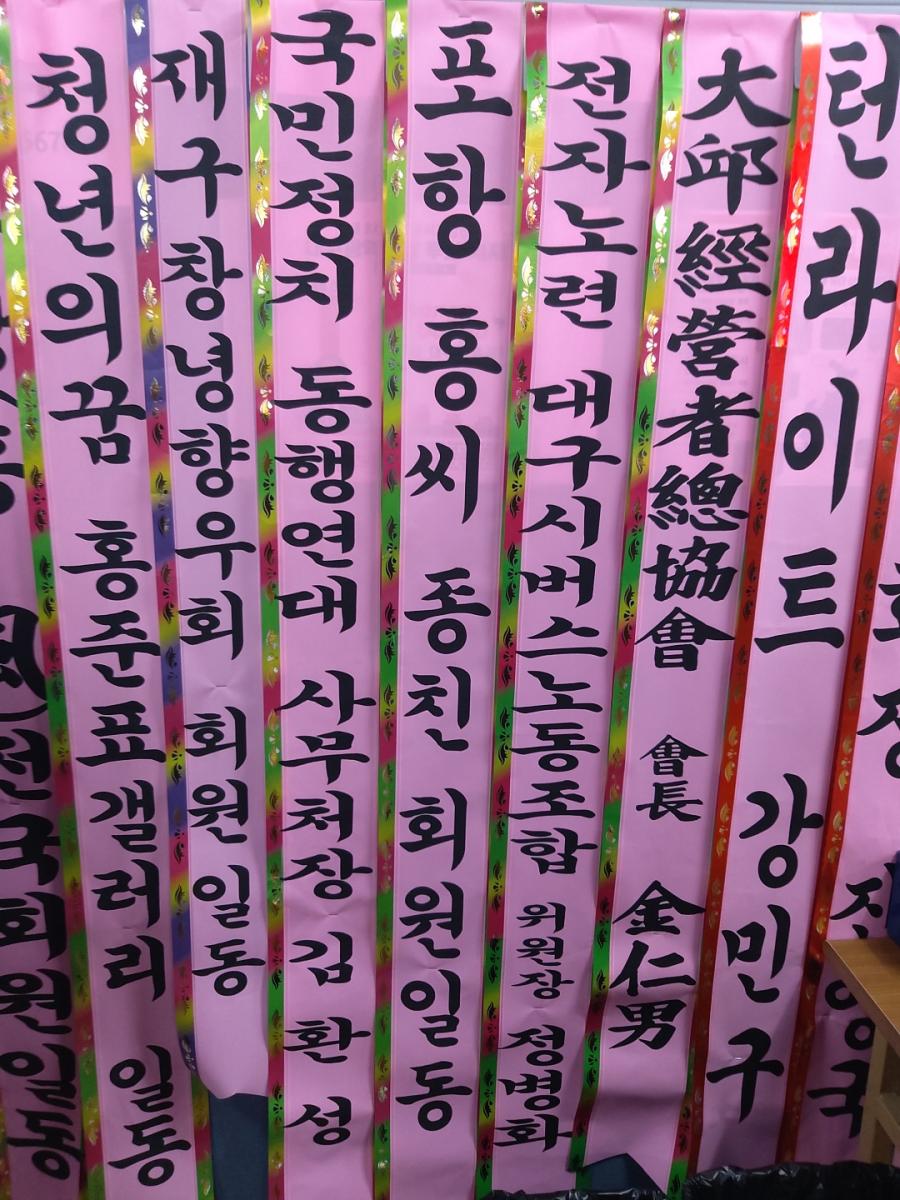 전국회원일동
청년의꿈 홍준표갤러리 일동
재구창녕향우회 회원 일동
국민정치 동행연대 사무처장 김환성
포항 홍씨 종친 회원일동
전자노련 대구시버스노동조합 위원장 정병화
大邱經營者總協會 會長 金仁男
턴라이트 강민구